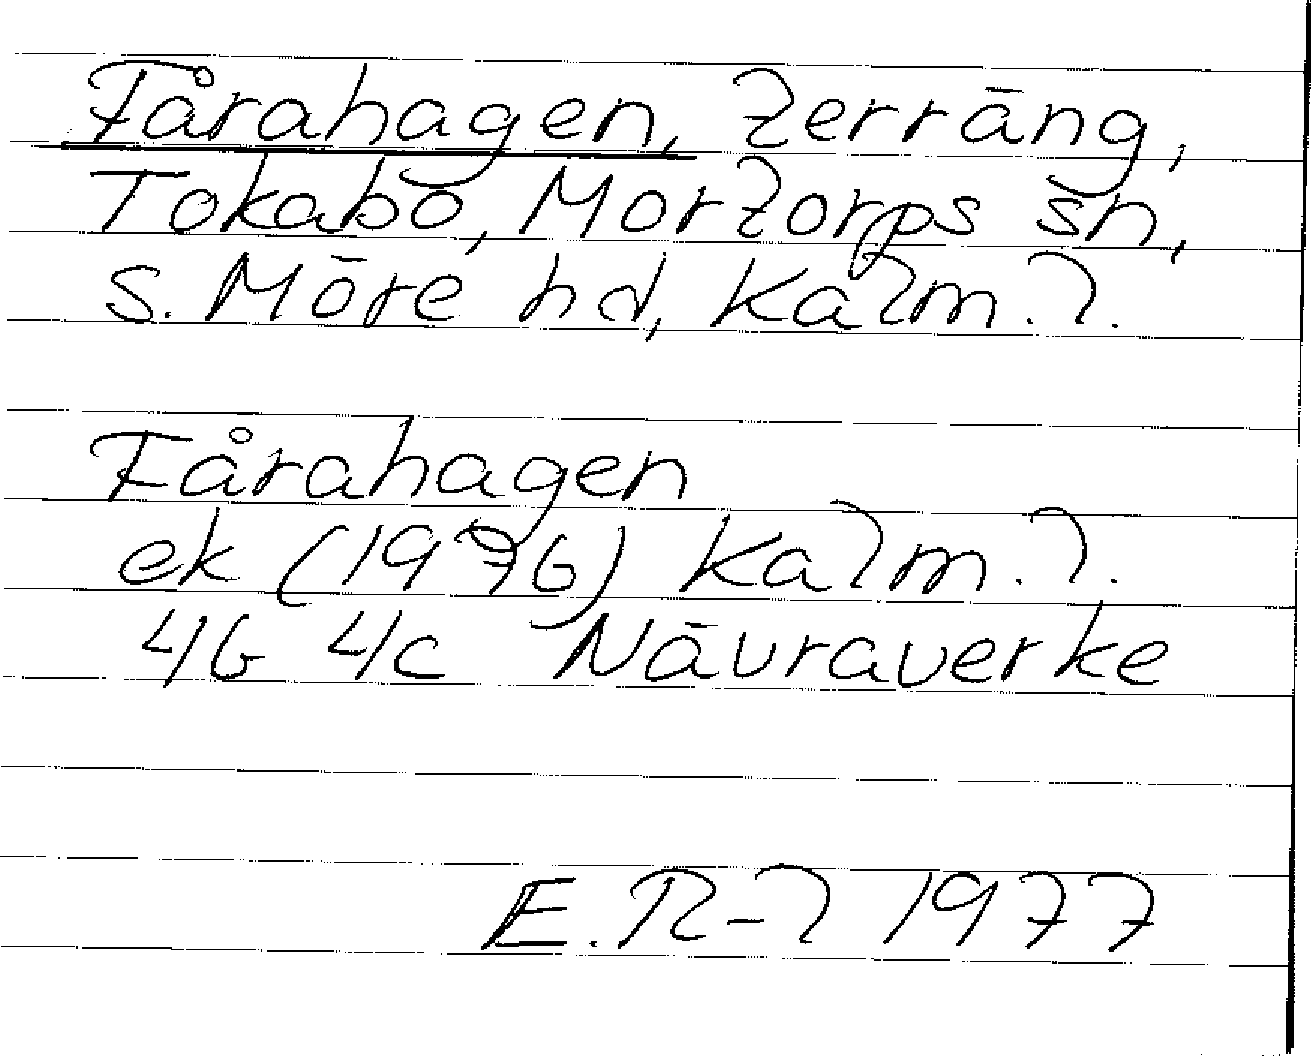 Fårahagen, terräng,
Tokabö, Mortorps sn,
S. Möre hd, Kalm. l.
Fårahagen
ek (1976) Kalm. l.
4b 4c Nävraverke
E. R-l 1977